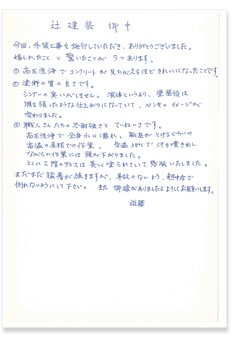 辻建装 御中
今回、外装工事を施行していただき、ありがとうございました。
嬉しかったことと驚いたことが3つあります。
① 高圧洗浄でコンクリートが見ちがえるほどきれいになったことです。
② 塗料の質の良さです。
シンナーの臭いがしません。 溶液というより、塗装後は
膜を張ったような仕上がりになっていて、ペンキのイメージが
変わりました。
③ 職人さんたちの忍耐強さとていねいさです。
高圧洗浄で全身水に濡れ、
高温の屋根での作業、 汗が噴き出し
ながらの作業には頭が下がりました。
とくに
は美しく塗られていて感服いたしました。
まだまだ猛暑が続きますが、事故のないよう、熱中症で
倒れないようにして下さい。 また御縁がありましたらよろしくお願いします。